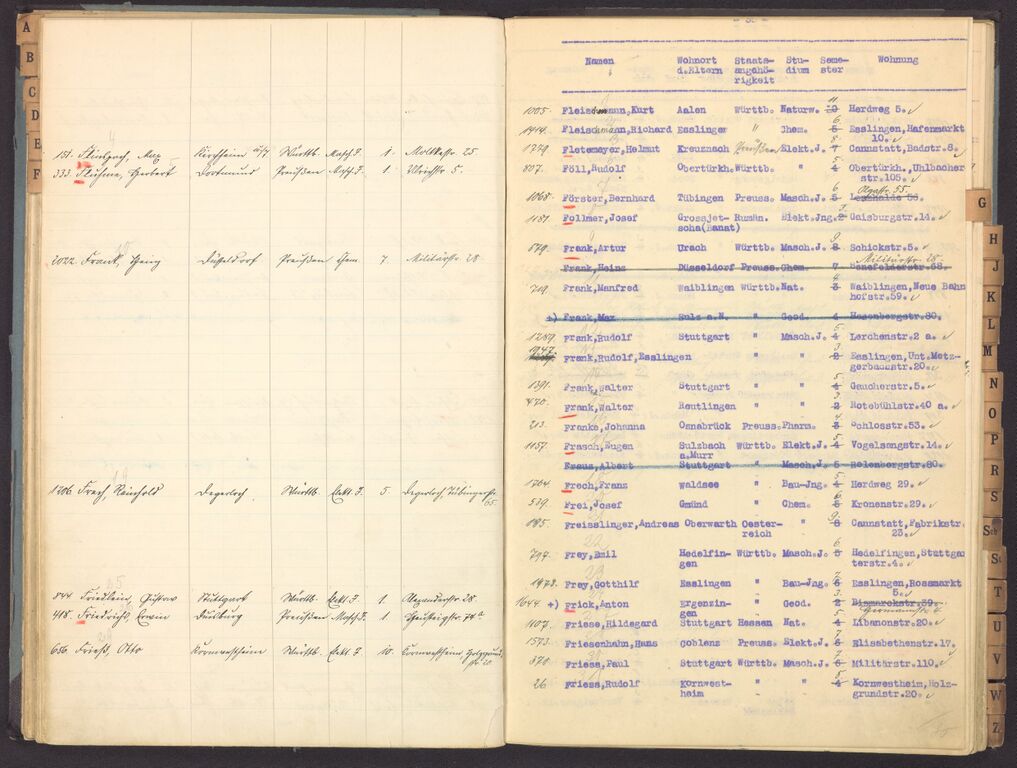 A
B
C
D
E
F
151. Max Kirchheim u/T Württb. Masch.J. 1. Moltkestr. 25
333. Fluhme, Herbert Dortmund Preußen Masch.J. 1. 5.
2022. Frank, Heinz Düsseldorf Preußen Chem. 7. Militärstr. 28
1706 Frech Reinhold Degerloch Württb. Elekt.J. 5. Degerloch, Tübingerstr.
65.
844 Friedlein, Gustav Stuttgart Württb. Elekt.J. 1. Alexanderstr. 28.
418. Friedrich, Erwin Duisburg Preußen Masch.J. 1 74a
686 Frieß, Otto Kornwestheim Württb. Elekt.J. 10. Kornwestheim
str. 20
- 35 -
Namen Wohnort Staats- Stu- Seme- Wohnung
d.Eltern angehö- dium ster
rigkeit
1005. Fleischmann, Kurt Aalen Württb. Naturw. 10 11 Herdweg 5.
1414. Fleischmann, Richard Esslingen " Chem. 5 6 Esslingen, Hafenmarkt
10.
1779. Fletemeyer, Helmut Kreuznach Preußen Elekt.J. 7 Cannstatt, Badstr. 8.
807. Föll, Rudolf Obertürkh. Württb. " 4 5 Obertürkh., Uhlbacher
str. 105.
Olgastr. 55.
1068. Förster, Bernhard Tübingen Preuss. Masch.J. 5 Lenzhalde 56.
1187. Follmer, Josef Grossjet- Rumän. Elekt.Jng. 2 3 Gaisburgstr. 14.
scha(Banat)
579. Frank, Artur Urach Württb. Masch.J. 8 9 Schickstr. 5.
Militärstr. 28
Frank, Heinz Düsseldorf Preuss. Chem. 7 Senefelderstr. 68.
719. Frank, Manfred Waiblingen Württb. Nat. 3 4 Waiblingen, Neue Bahn
hofstr. 59.
+) Frank, Max Sulz a.N. " Geod. 4 Hasenbergstr. 80.
1289. Frank, Rudolf Stuttgart " Masch.J. 4 5 Lerchenstr. 2 a.
1947. Frank, Rudolf, Esslingen " " 2 3 Esslingen, Unt. Metz-
gerbachstr. 20.
1391. Frank, Walter Stuttgart " " 4 5 Gaucherstr. 5.
470. Frank, Walter Reutlingen " " 2 3 Rotebühlstr. 40 a.
213. Franke, Johanna Osnabrück Preuss. Pharm. 3 4 Schlosstr. 53.
1157. Frasch, Eugen Sulzbach Württb. Elekt.J. 4 5 Vogelsangstr. 14.
a. Murr
Fraus, Albert Stuttgart " Masch.J. 5 Relenbergstr. 80.
1764. Frech, Franz Waldsee " Bau-Jng. 4 5 Herdweg 29.
539. Frei, Josef Gmünd " Chem. 5 6 Kronenstr. 29.
185. Freisslinger, Andreas Oberwarth Oester- " 8 9 Cannstatt, Fabrikstr.
reich 23.
797. Frey, Emil Hedelfin- Württb. Masch.J. 5 6 Hedelfingen, Stuttgar
gen terstr. 4.
1478. Frey, Gotthilf Esslingen " Bau-Jng. 6 Esslingen, Rossmarkt
5.
1644. +) Frick, Anton Ergenzin- " Geod. 2 Bismarckstr. 39.
gen Germanenstr. 6
1107. Friese, Hildegard Stuttgart Hessen Nat. 4 Libanonstr. 20.
1573. Friesenhahn, Hans Coblenz Preuss. Elekt.J. 6 7 Elisabethenstr. 17.
370. Friess, Paul Stuttgart Württb. Masch.J. 6 7 Militärstr. 110.
26. Friess, Rudolf Kornwest- " " 4 5 Kornwestheim, Holz-
heim grundstr. 20.
G
H
J
K
L
M
N
O
P
R
S
Sch
St
T
U
V
W
Z